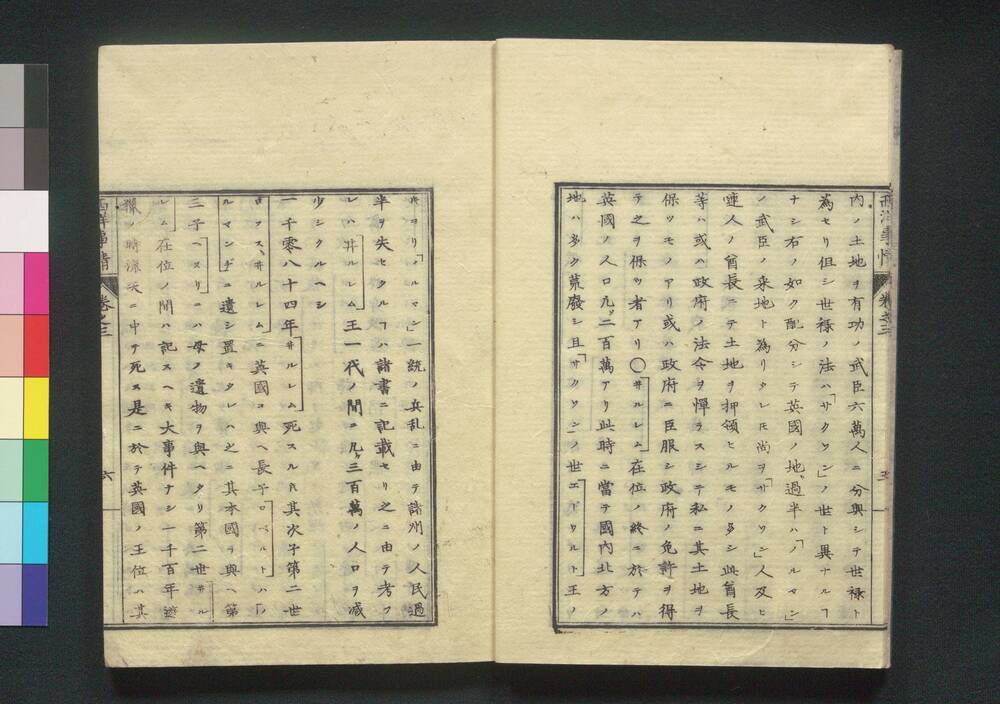 内ノ土地ヲ有功ノ武臣六萬人ニ分與シテ世禄ト
為セリ但シ世禄ノ法ハ「サクソン」ノ世ト異ナルヿ
ナシ右ノ如ク配分シテ英國ノ地、過半ハ「ノルマン」
ノ武臣ノ采地ト為リタレ𪜈尚ヲ「サクソン」人及ヒ
連人ノ酋長ニテ土地ヲ押領セルモノ多シ此酋長
等ハ或ハ政府ノ法令ヲ憚ラスシテ私ニ其土地ヲ
保ツモノアリ或ハ政府ニ臣服シ政府ノ免許ヲ得
テ之ヲ保ツ者アリ〇井ルレム在位ノ終ニ於テハ
英國ノ人口凡ソ二百萬アリ此時ニ當テ國内北方ノ
地ハ多ク荒廢シ且「サクソン」ノ世エドワルド王ノ
時ヨリ「ノルマン」一統ノ兵乱ニ由テ諸州ノ人民過
半ヲ失セタルヿハ諸書ニ記載セリ之ニ由テ考フ
レハ井ルレム王一代ノ間ニ凡ソ三百萬ノ人口ヲ減
少シタルヘシ
一千零八十四年井ルレム死スルトキ其次子第二世
ロフス、井ルレムニ英國ヲ與ヘ長子ロベルトハ「
ルマンヂ」ニ遺シ置キタレハ之ニ其本國ヲ與ヘ第
三子ヘヌリーニハ母ノ遺物ヲ與ヘタリ第二世井ル
レム在位ノ間ハ記スヘキ大事件ナシ一千百年遊
獵ノ時流矢ニ中テ死ス是ニ於テ英國ノ王位ハ其
西洋事情
卷之三
五
西洋事情
卷之三
六